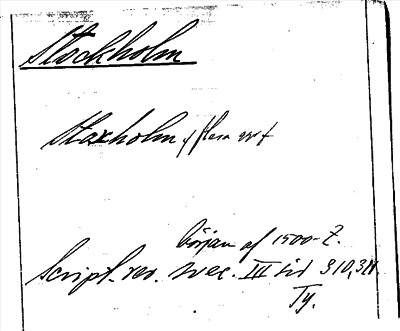 Stockholm
Staxholm, flera ggr
början af 1500-t.
Script. rer. svec. III sid 310, 311
Ty.